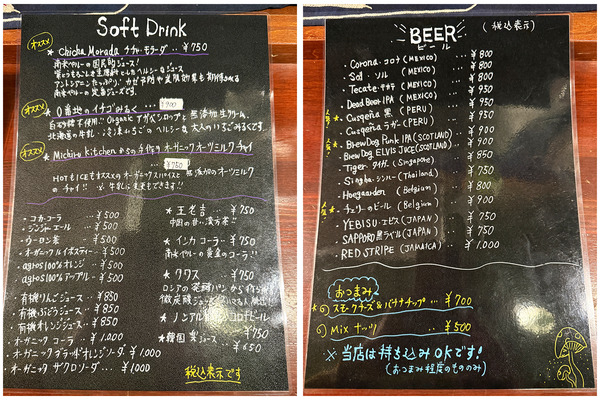 Soft Drink
オススメ
Chicha Morada チチャモラーダ‥¥750
南米ペルーの国民的ジュース!
紫とうもろこしを主原料としたヘルシーなジュース
南米ペルーの定番ジュースです。
オススメ
O番地のイチゴみるく ¥700
白砂糖不使用!! Organic アガベシロップと無添加生クリーム、
北海道の牛乳、冷凍いちごのヘルシーな大人のいちごみるくです。
オススメ
Michiru Kitchenからの手作りオーガニックオーツミルクチャイ
¥750
HOTもICEもオススメのオーガニックスパイスと無添加のオーツミルク
のチャイ!! ※牛乳に変更もできます!!
・コカ・コーラ …¥500
・ジンジャーエール …¥500
・ウーロン茶 …¥500
・オーガニックルイボスティー…¥500
・agros100%オレンジ…¥500
・agros100%アップル…¥500
・有機りんごジュース…¥850
・有機ぶどうジュース…¥850
・有機オレンジジュース…¥850
・オーガニック コーラ …¥1,000
・オーガニックブラッドオレンジソーダ‥¥1,000
・オーガニック ザクロソーダ…¥1000
★王老吉…¥750
中国の甘い漢方茶!!
★インカコーラ…¥750
南米ペルーの黄金のコーラ!!
★クワス…¥750
ロシアの発酵パンから作る
微炭酸ジュース
★ノンアルコールビール
…¥750
★韓国 梨ジュース…¥650
税込表示です
BEER
ビール
(税込表示)
・Corona・コロナ(MEXICO) ¥800
・Sol・ソル(MEXICO) ¥800
・Tecate・テカテ(MEXICO) ¥800
・Dead Beer IPA(MEXICO) ¥950
・Cusqeña 黒(PERU) ¥950
・Cusqeña ラガー(PERU) ¥900
・BrewDog Punk IPA(SCOTLAND) ¥900
・BrewDog ELVIS JUCE(SCOTLAND) ¥850
・Tiger・タイガー(Singapore) ¥750
・Singha・シンハー(Thailand) ¥800
・Hoegaarden(Belgian) ¥800
・チェリーのビール(Belgium) ¥900
・YEBISU・エビス(JAPAN) ¥750
・SAPPORO黒ラベル(JAPAN) ¥750
・RED STRIPE(JAMAICA) ¥1,000
おつまみ
スモークチーズ&バナナチップ…¥700
Mix ナッツ …¥500
※当店は持ち込みOKです!
(おつまみ程度のもののみ)